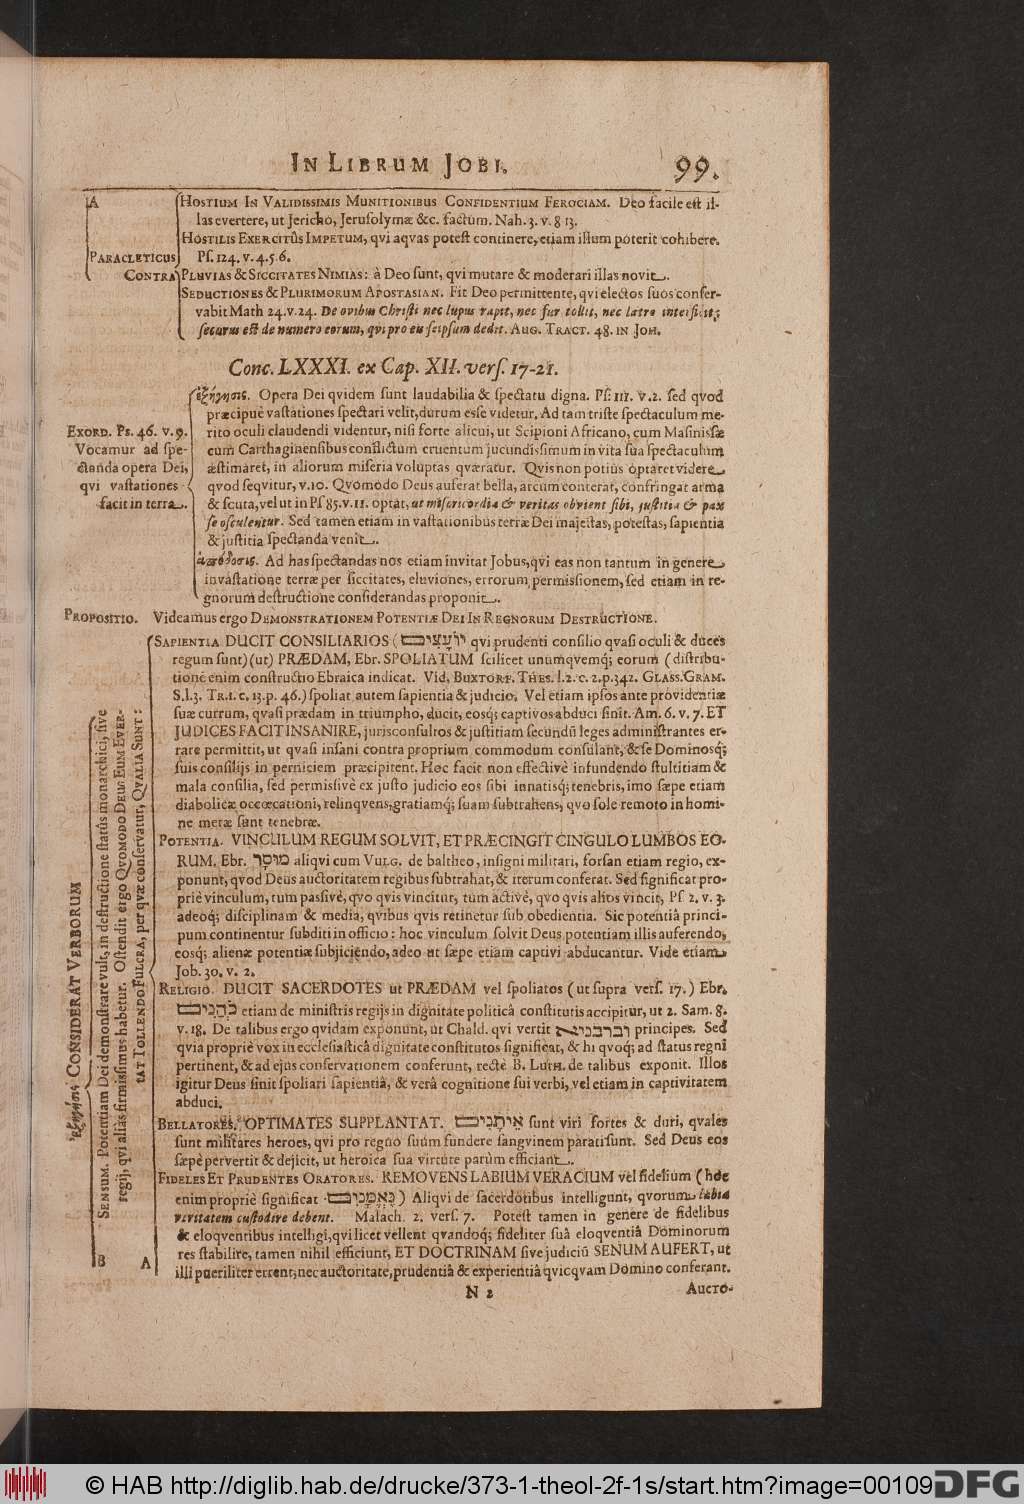 IN LIBRUM JOBI. 99.
A
HOSTIUM IN VALIDISSIMIS MUNITIONIBUS CONFIDENTIUM FEROCIAM. Deo facile est il-
las evertere, ut Jericho, Jerusolymæ &c. factum. Nah. 3. v. 8 13.
HOSTILIS EXERCITÛS IMPETUM, qvi aqvas potest continere, etiam illum poterit cohibere.
PARACLETICUS Ps. 124. v. 4. 5. 6.
CONTRA PLUVIAS & SICCITATES NIMIAS: à Deo sunt, qvi mutare & moderari illas novit.
SEDUCTIONES & PLURIMORUM APOSTASIAN. Fit Deo permittente, qvi electos suos conser-
vabit Math 24. v. 24. De ovibus Christi nec lupus rapit, nec fur tollit, nec latro interficit;
securus est de numero eorum, qvi pro eis seipsum dedit. AUG. TRACT. 48. IN JOH.
Conc. LXXXI. ex Cap. XII. vers. 17-21.
ἐξήγησις. Opera Dei qvidem sunt laudabilia & spectatu digna. Ps. 111. v. 2. sed qvod
præcipuè vastationes spectari velit, durum esse videtur. Ad tam triste spectaculum me-
EXORD. PS. 46. v. 9. rito oculi claudendi videntur, nisi forte alicui, ut Scipioni Africano, cum Masinissæ
Vocamur ad spe- cum Carthaginensibus conflictum cruentum jucundissimum in vita sua spectaculum
ctanda opera Dei, æstimaret, in aliorum miseria voluptas qværatur. Qvis non potius optaret videre
qvi vastationes qvod seqvitur, v. 10. Qvomodo Deus auferat bella, arcum conterat, confringat arma
facit in terra. & scuta, vel ut in Ps 85. v. 11. optat, ut misericordia & veritas obvient sibi, justitia & pax
se osculentur. Sed tamen etiam in vastationibus terræ Dei majestas, potestas, sapientia
& justitia spectanda venit.
ἀπόδοσις. Ad has spectandas nos etiam invitat Jobus, qvi eas non tantum in genere
in vastatione terræ per siccitates, eluviones, errorum permissionem, sed etiam in re-
gnorum destructione considerandas proponit.
PROPOSITIO. Videamus ergo DEMONSTRATIONEM POTENTIÆ DEI IN REGNORUM DESTRUCTIONE.
SAPIENTIA DUCIT CONSILIARIOS (יוֹעֲצִים qvi prudenti consilio qvasi oculi & duces
regum sunt) (ut) PRÆDAM, Ebr. SPOLIATUM scilicet unumqvemq; eorum (distribu-
tionē enim constructio Ebraica indicat. Vid, BUXTORF. THES. l. 2. c. 2. p. 342. GLASS. GRAM.
S. l. 3. TR. 1. c. 13. p. 46.) spoliat autem sapientia & judicio. Vel etiam ipsos ante providentiæ
suæ currum, qvasi prædam in triumpho, ducit, eosq; captivos abduci sinit. Am. 6. v. 7. ET
JUDICES FACIT INSANIRE, jurisconsultos & justitiam secundū leges administrantes er-
rare permittit, ut qvasi insani contra proprium commodum consulant, & se Dominosq;
suis consilijs in perniciem præcipitent. Hoc facit non effectivè infundendo stultitiam &
mala consilia, sed permissivè ex justo judicio eos sibi innatisq; tenebris, imo sæpe etiam
diabolicæ occœcationi, relinqvens, gratiamq; suam subtrahens, qvo sole remoto in homi-
ne meræ sunt tenebræ.
POTENTIA. VINCULUM REGUM SOLVIT, ET PRÆCINGIT CINGULO LUMBOS EO-
RUM. Ebr. מוּסָר aliqvi cum VULG. de baltheo, insigni militari, forsan etiam regio, ex-
ponunt, qvod Deus auctoritatem regibus subtrahat, & iterum conferat. Sed significat pro-
priè vinculum, tum passivè, qvo qvis vincitur, tum activè, qvo qvis alios vincit, Ps 2. v. 3.
adeoq; disciplinam & media, qvibus qvis retinetur sub obedientia. Sic potentiâ princi-
pum continentur subditi in officio: hoc vinculum solvit Deus potentiam illis auferendo,
eosq; alienæ potentiæ subjiciendo, adeo ut sæpe etiam captivi abducantur. Vide etiam
Job. 30. v. 2.
RELIGIO. DUCIT SACERDOTES ut PRÆDAM vel spoliatos (ut supra vers. 17.) Ebr.
כֹּהֲנִים etiam de ministris regijs in dignitate politicâ constitutis accipitur, ut 2. Sam. 8.
v. 18. De talibus ergo qvidam exponunt, ut Chald. qvi vertit רברבניא principes. Sed
qvia propriè vox in ecclesiasticâ dignitate constitutos significat, & hi qvoq; ad status regni
pertinent, & ad ejus conservationem conferunt, rectè B. LUTH. de talibus exponit. Illos
igitur Deus sinit spoliari sapientiâ, & verâ cognitione sui verbi, vel etiam in captivitatem
abduci.
BELLATORES, OPTIMATES SUPPLANTAT. אֵיתָנִים sunt viri fortes & duri, qvales
sunt militares heroes, qvi pro regno suum fundere sangvinem parati sunt. Sed Deus eos
sæpè pervertit & dejicit, ut heroica sua virtute parùm efficiant.
FIDELES ET PRUDENTES ORATORES. REMOVENS LABIUM VERACIUM vel fidelium (hoc
enim propriè significat נֶאֱמָנִים) Aliqvi de sacerdotibus intelligunt, qvorum labia
veritatem custodire debent. Malach. 2. vers. 7. Potest tamen in genere de fidelibus
& eloqventibus intelligi, qvi licet vellent qvandoq; fideliter suâ eloqventiâ Dominorum
res stabilire, tamen nihil efficiunt, ET DOCTRINAM sive judiciū SENUM AUFERT, ut
illi pueriliter errent, nec auctoritate, prudentiâ & experientiâ qvicqvam Domino conferant.
ἐξήγησις CONSIDERAT VERBORUM
SENSUM. Potentiam Dei demonstrare vult, in destructione statûs monarchici, sive
regij, qvi aliàs firmissimus habetur. Ostendit ergo QVOMODO DEUS EUM EVER-
TAT TOLLENDO FULCRA, per qvæ conservatur, QVALIA SUNT:
B A
N 2 AUCTO-
© HAB http://diglib.hab.de/drucke/373-1-theol-2f-1s/start.htm?image=00109
DFG